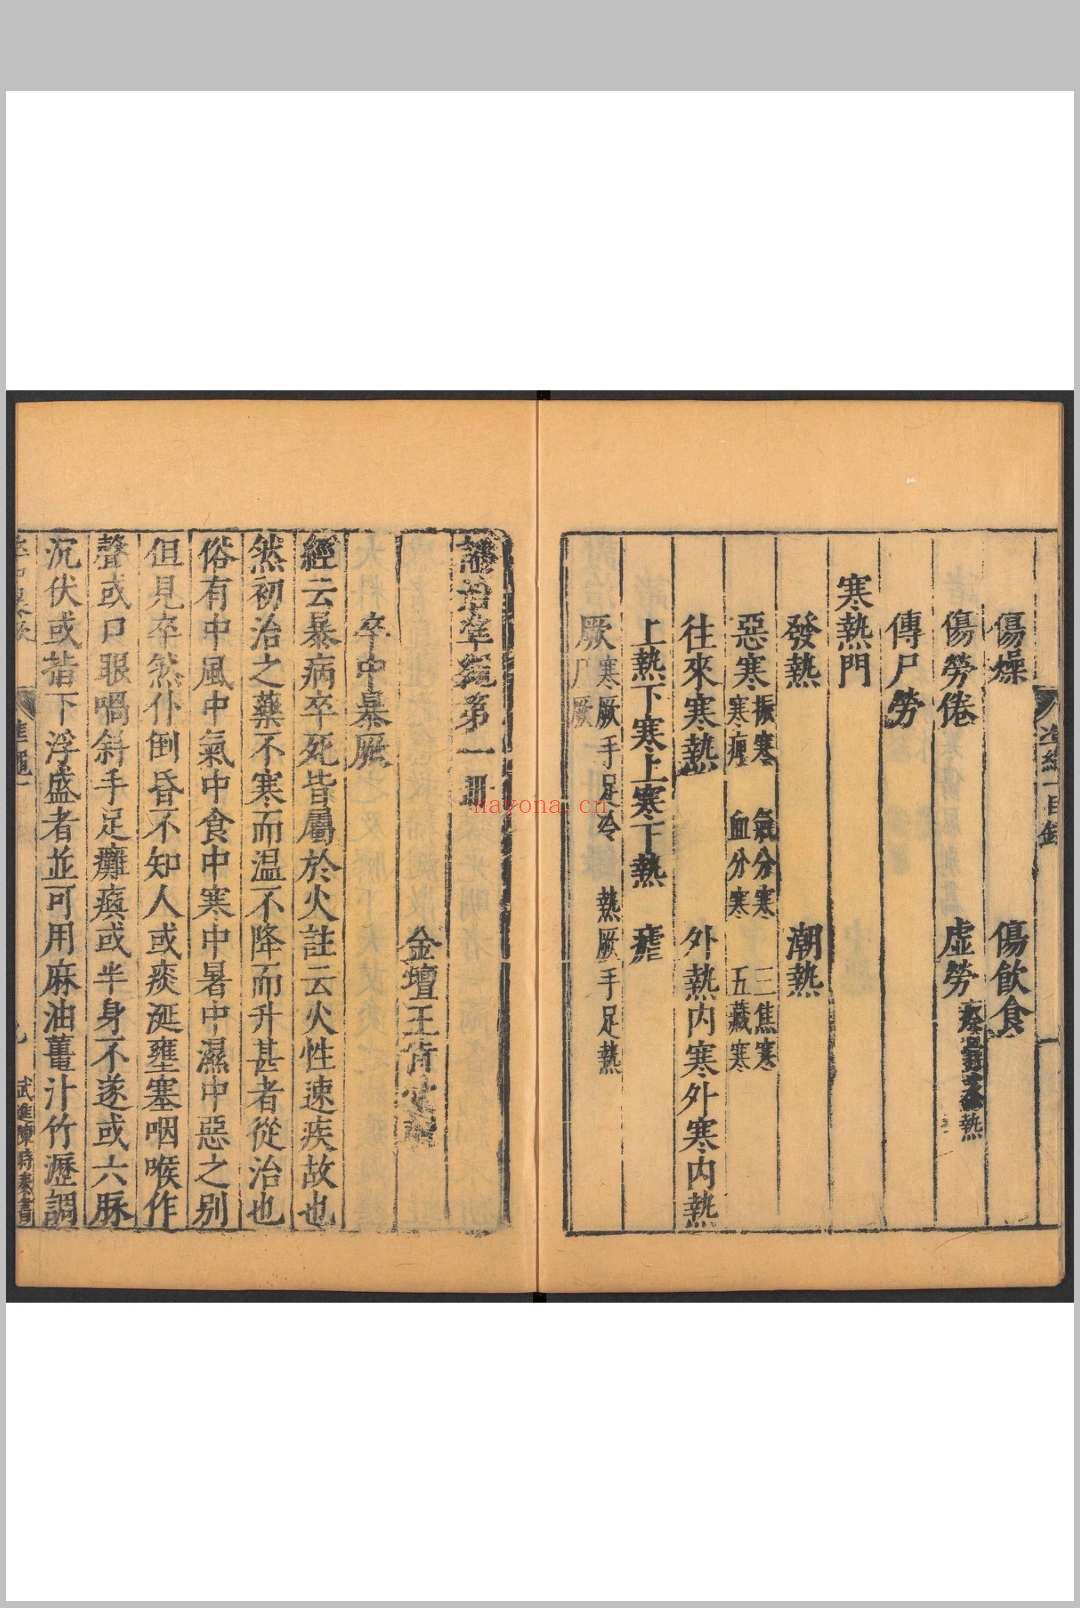 傷燥　傷飲食
傷勞倦　虛勞
熱
傳尸勞
寒熱門
發熱　潮熱
惡寒 振寒　氣分寒　三焦寒
寒痙　血分寒　五藏寒
往來寒熱　外熱內寒外寒內熱
上熱下寒上寒下熱　瘧
厥 寒厥手足冷　熱厥手足熱
尸厥
證治準繩第一冊
金壇王肯堂輯
卒中暴厥
經云暴病卒死皆屬於火註云火性速疾故也
然初治之藥不寒而溫不降而升甚者從治也
俗有中風中氣中食中寒中暑中濕中惡之別
但見卒然仆倒昏不知人或痰涎壅塞咽喉作
聲或口眼喎斜手足癱瘓或半身不遂或六脉
沉伏或指下浮盛者並可用麻油薑汁竹瀝調
準繩一
武進陳時泰書
nayona.cn